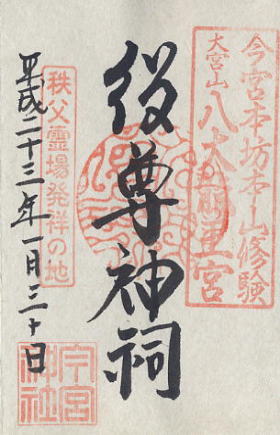 今宮本坊本山修験
大宮山
八大龍王宮
役尊神祠
秩父霊場発祥の地
平成二十三年一月三十日
今宮神社